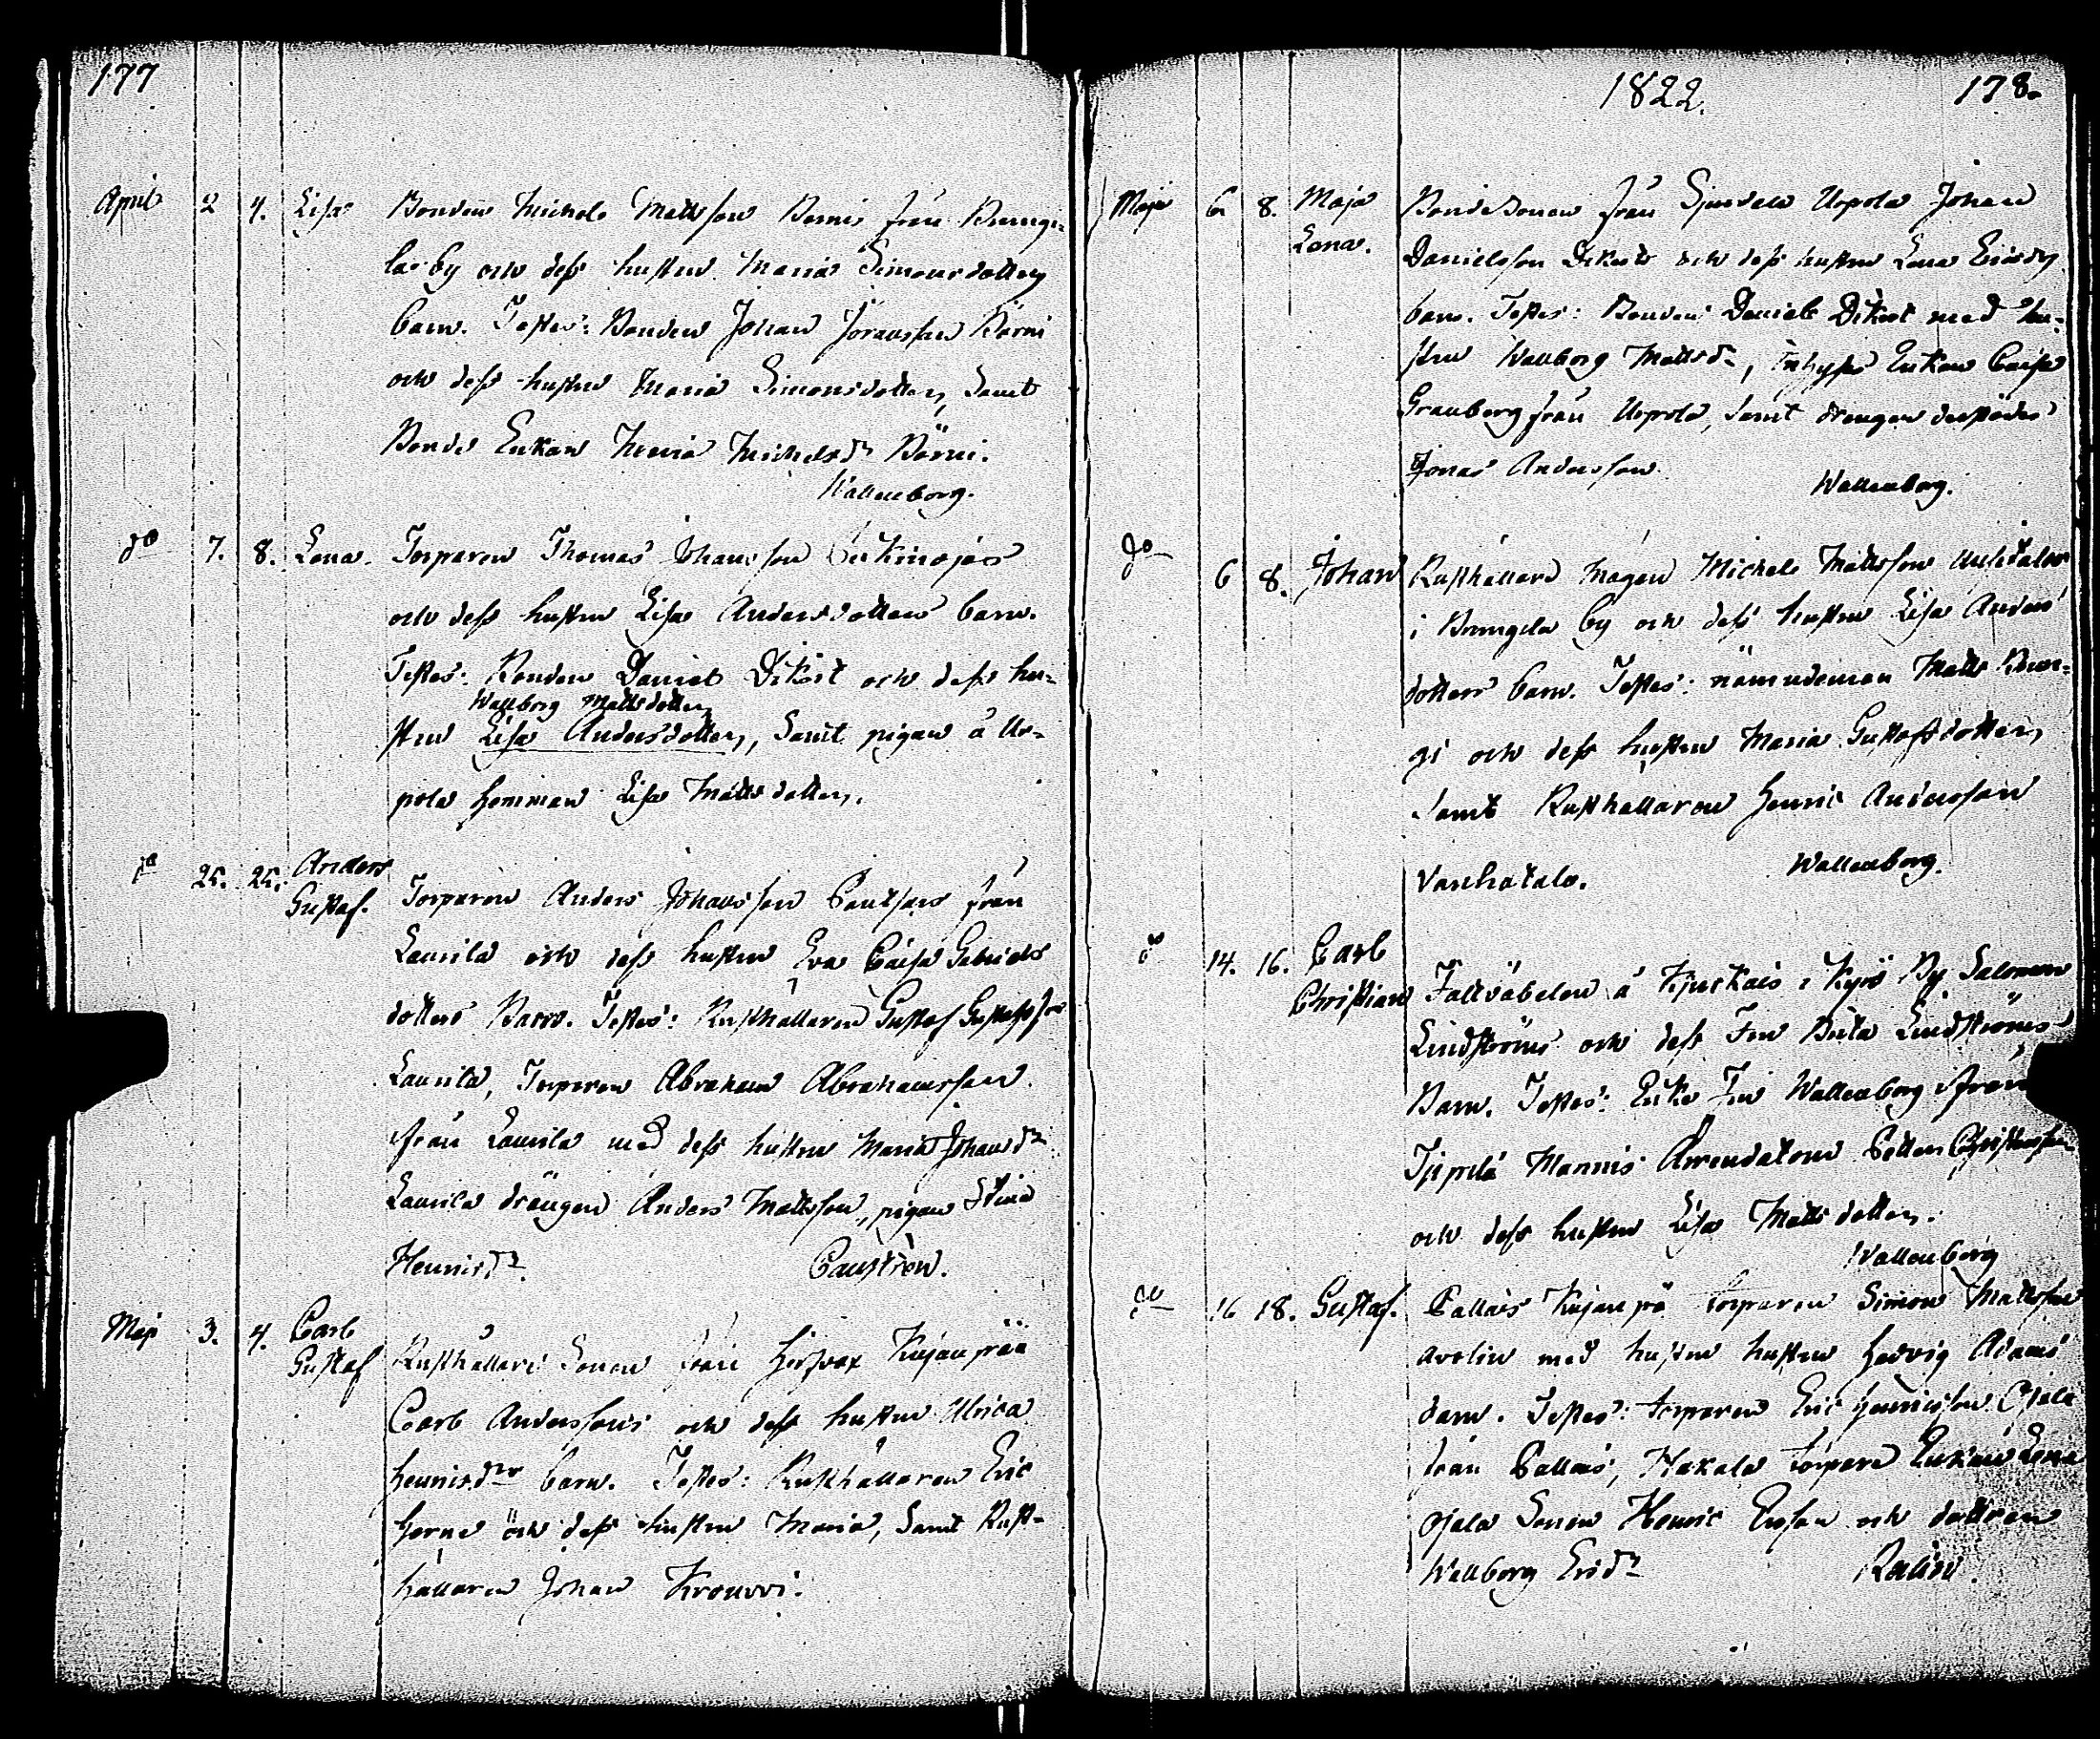 177
April 2 4. Lisa Bonden Michels Mattsson Börni från Brunge-
la by och dess hustru Maria Simonsdotters
barn. Testes: Bonden Johan Joransson Börni
och dess hustru Maria Simonsdotter, samt
Bonde Enkan Maria Michelsdr Börni.
Wallenborg.
do 7. 8. Lena. Torparen Thomas Johansson
och dess hustru Lisa Andersdotters barn.
Testes: Bonden Daniel Dikert och dess hu-
Wallborg Mattsdotter
stru Lisa Andersdotter, samt pigan å Ur-
pola hemman Lisa Mattsdotter.
do 25. 25. Anders
Gustaf. Torparen Anders Johansson från
Laurila och dess hustru Eva Caisa Gabriels
dotters Barn. Testes: Rusthållaren Gustaf Gustafsson
Laurila, Torparen Abraham Abrahamsson
från Laurila med dess hustru Maria Johansdr
Laurila drängen Anders Mattsson, pigan Stina
Henricsdr. Castrèn.
Maji 3. 4. Carl
Gustaf Rusthållare Sonen från Kujanpää
Carl Anderssons och dess hustru Ulrica
Henricsdrs barn. Testes: Rusthållaren Eric
och dess hustru Maria, samt Rust-
hållaren Johan Krouvi.
1822. 178.
Maji 6 8. Maja
Lena. BondeSonen från Urpola Johan
Danielsson Dikerts och dess hustru Lena Ericsdrs
barn. Testes: Bonden Daniel Dikert med hu-
stru Wallborg Mattsdr, Inhyses Enkan Caisa
Granberg från Urpola, samt drengen derstädes
Jonas Andersson. Wallenborg.
do 6 8. Johan Rusthållare Mågen Michels Mattsson
i Brungela by och dess hustru Lisa Anders
dotters barn. Testes: nämndeman Matts Brun-
gi och dess hustru Maria Gustafsdotter,
samt Rusthållaren Henric Andersson
Vanhatalo. Wallenborg.
do 14. 16. Carl
Christian Fältväbelen å i Kyrö By Salomon
Lindströms och dess Fru Brita Lindströms
Barn. Testes: Enke Fru Wallenborg från
Mannis Arrendatorn Petter
och dess hustru Lisa Mattsdotter.
Wallenborg
do 16 18. Gustaf. Pallais Kujanpä torparen Simon Mattsson
med hustru hustru Hedvig Adams
barn. Testes: torparen Eric Henricsson Ojala
från Pallais, torpare Enkan Lena
Ojala Sonen Henric Ersson och dottren
Wallborg Ersdr